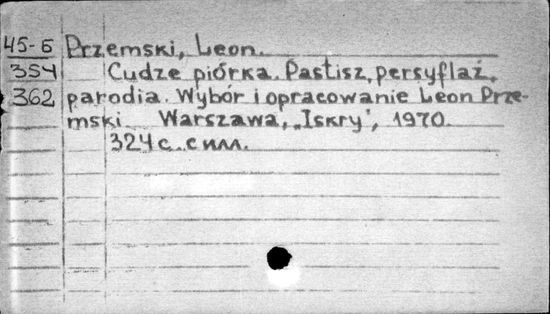 45-Б Przemski, Leon.
354 Cudze piórka. Pastisz, persyflaż,
362 parodia. Wybór i opracowanie Leon Prze-
mski Warszawa, „Iskry", 1970.
324 с. с илл.